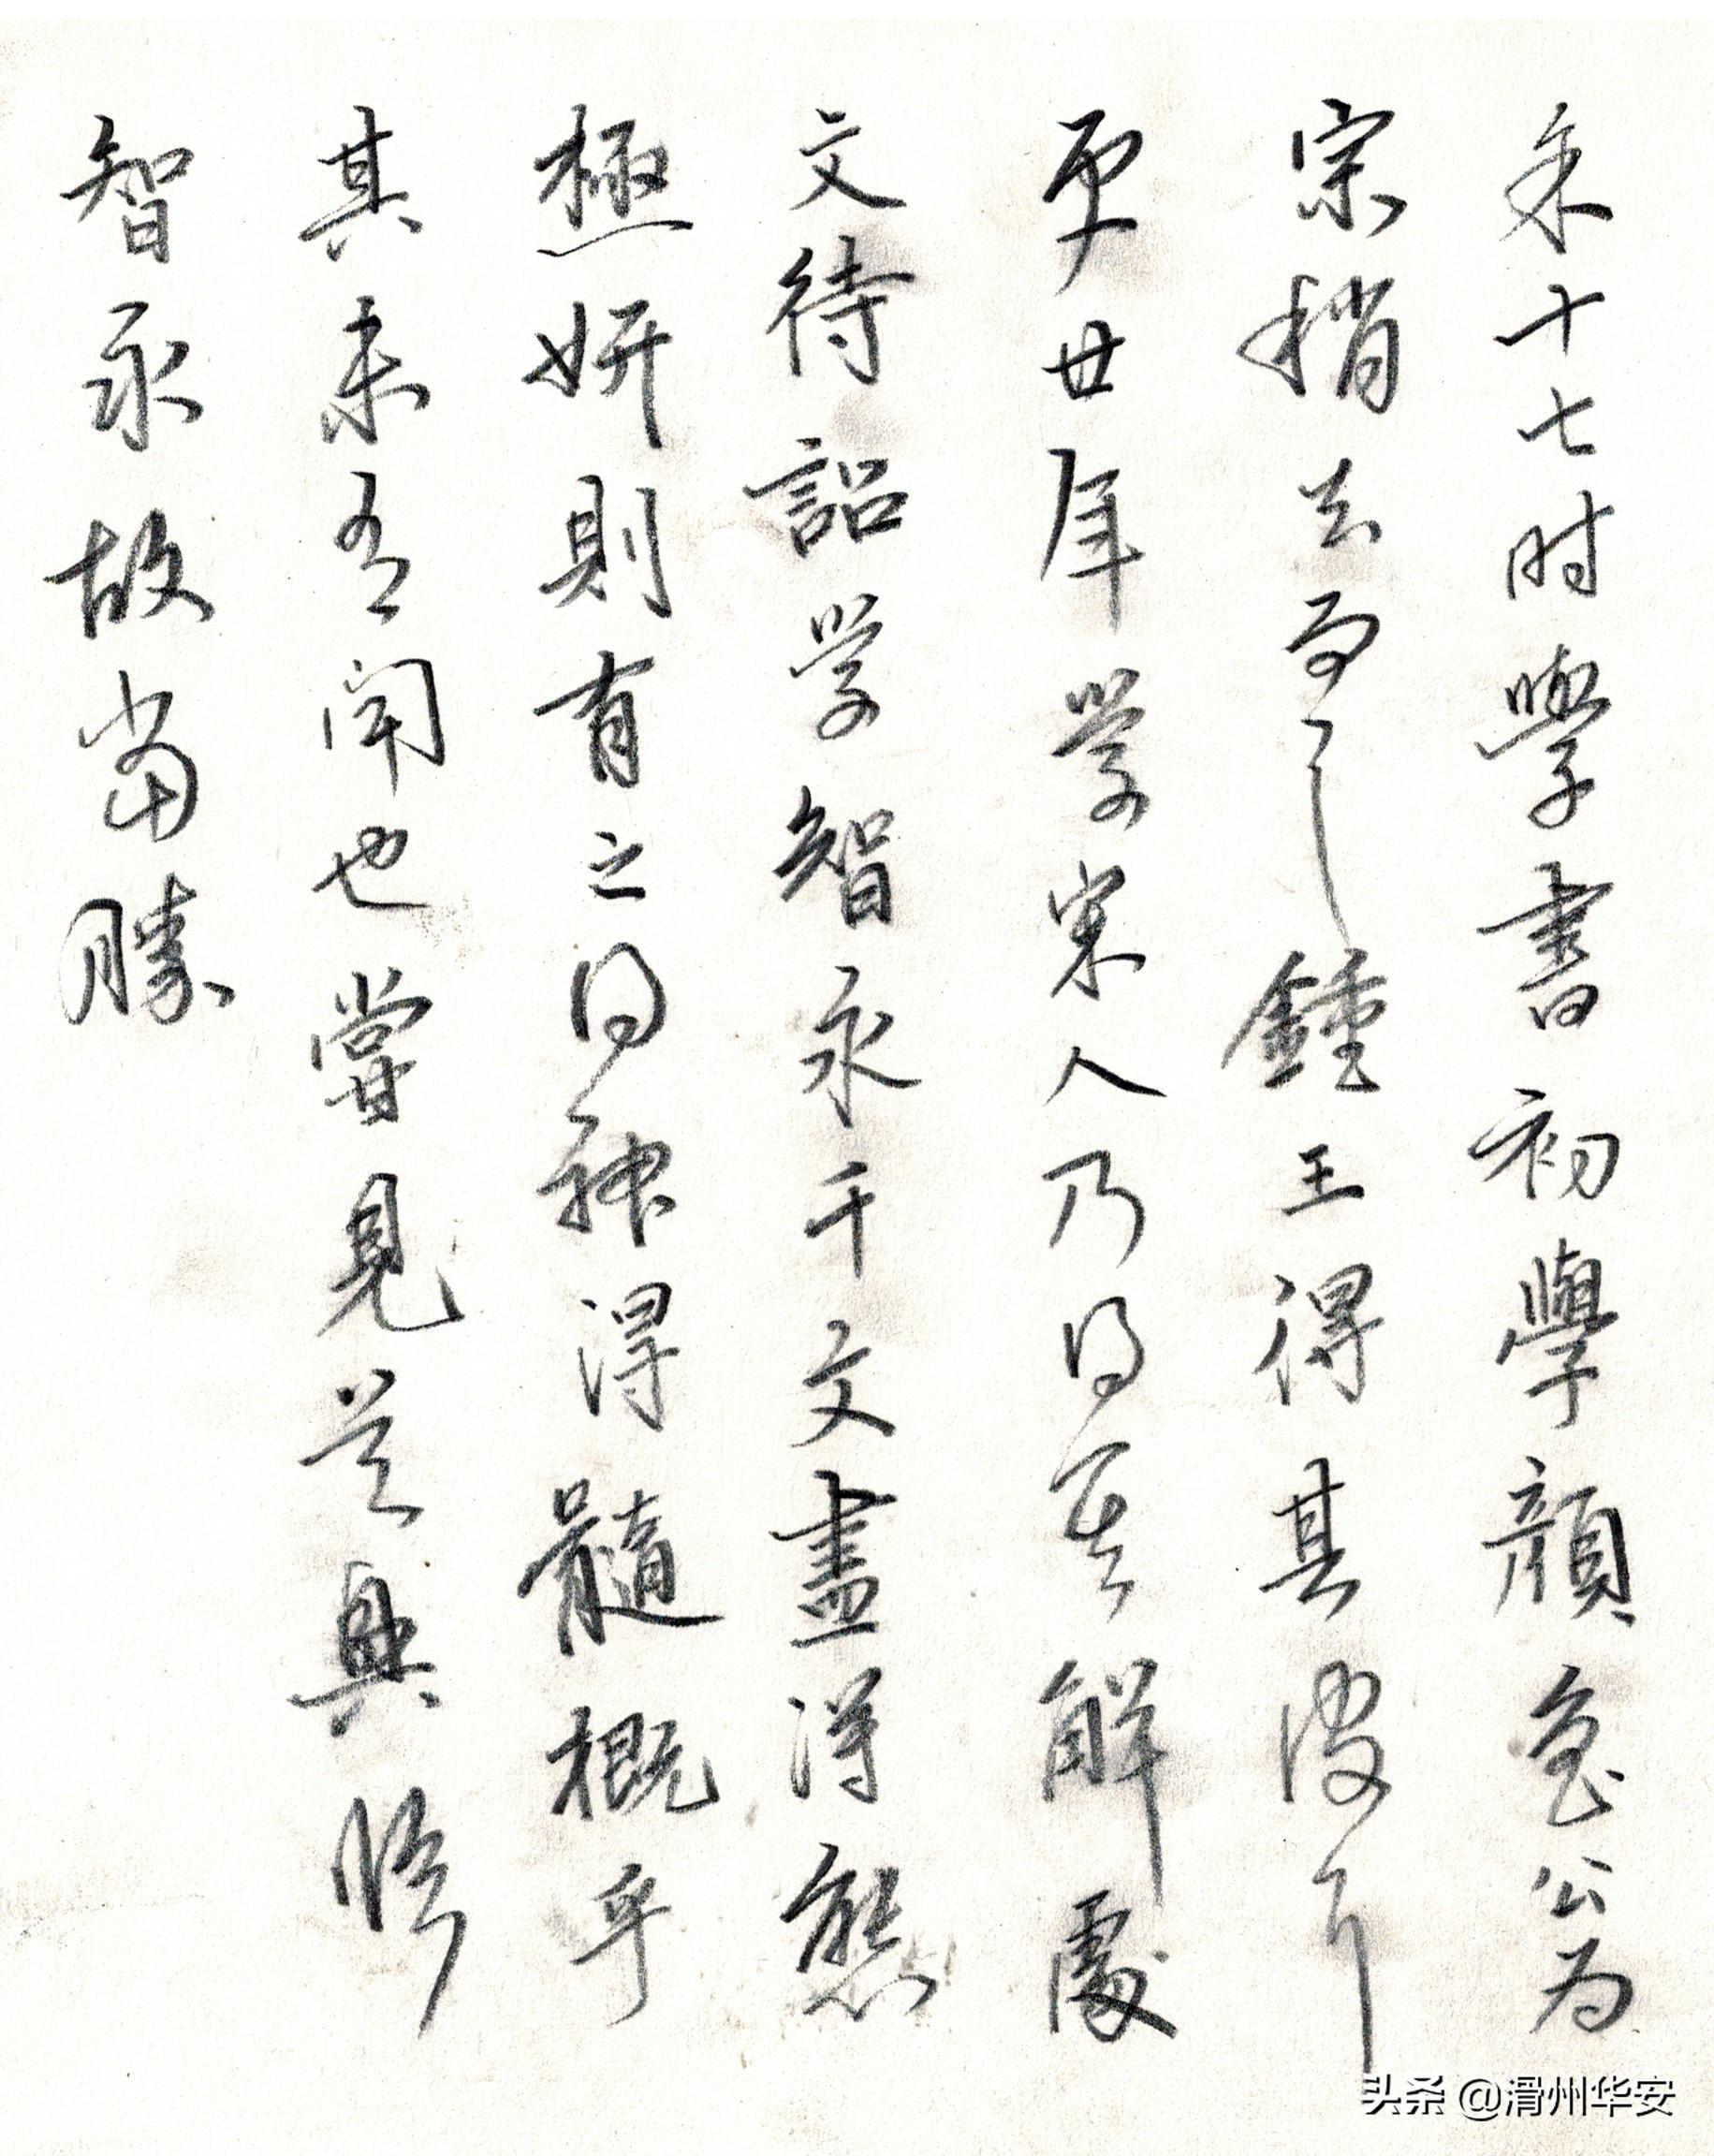 余十七时學書初學顏魯公为
宗稍去而之鍾王得其皮耳
更廿年学宋人乃得其解處
文待詔学智永千文盡得態
極妍則有之得神得髓概乎
其未有闻也嘗見吴興臨
智永故當勝
头条 @滑州华安